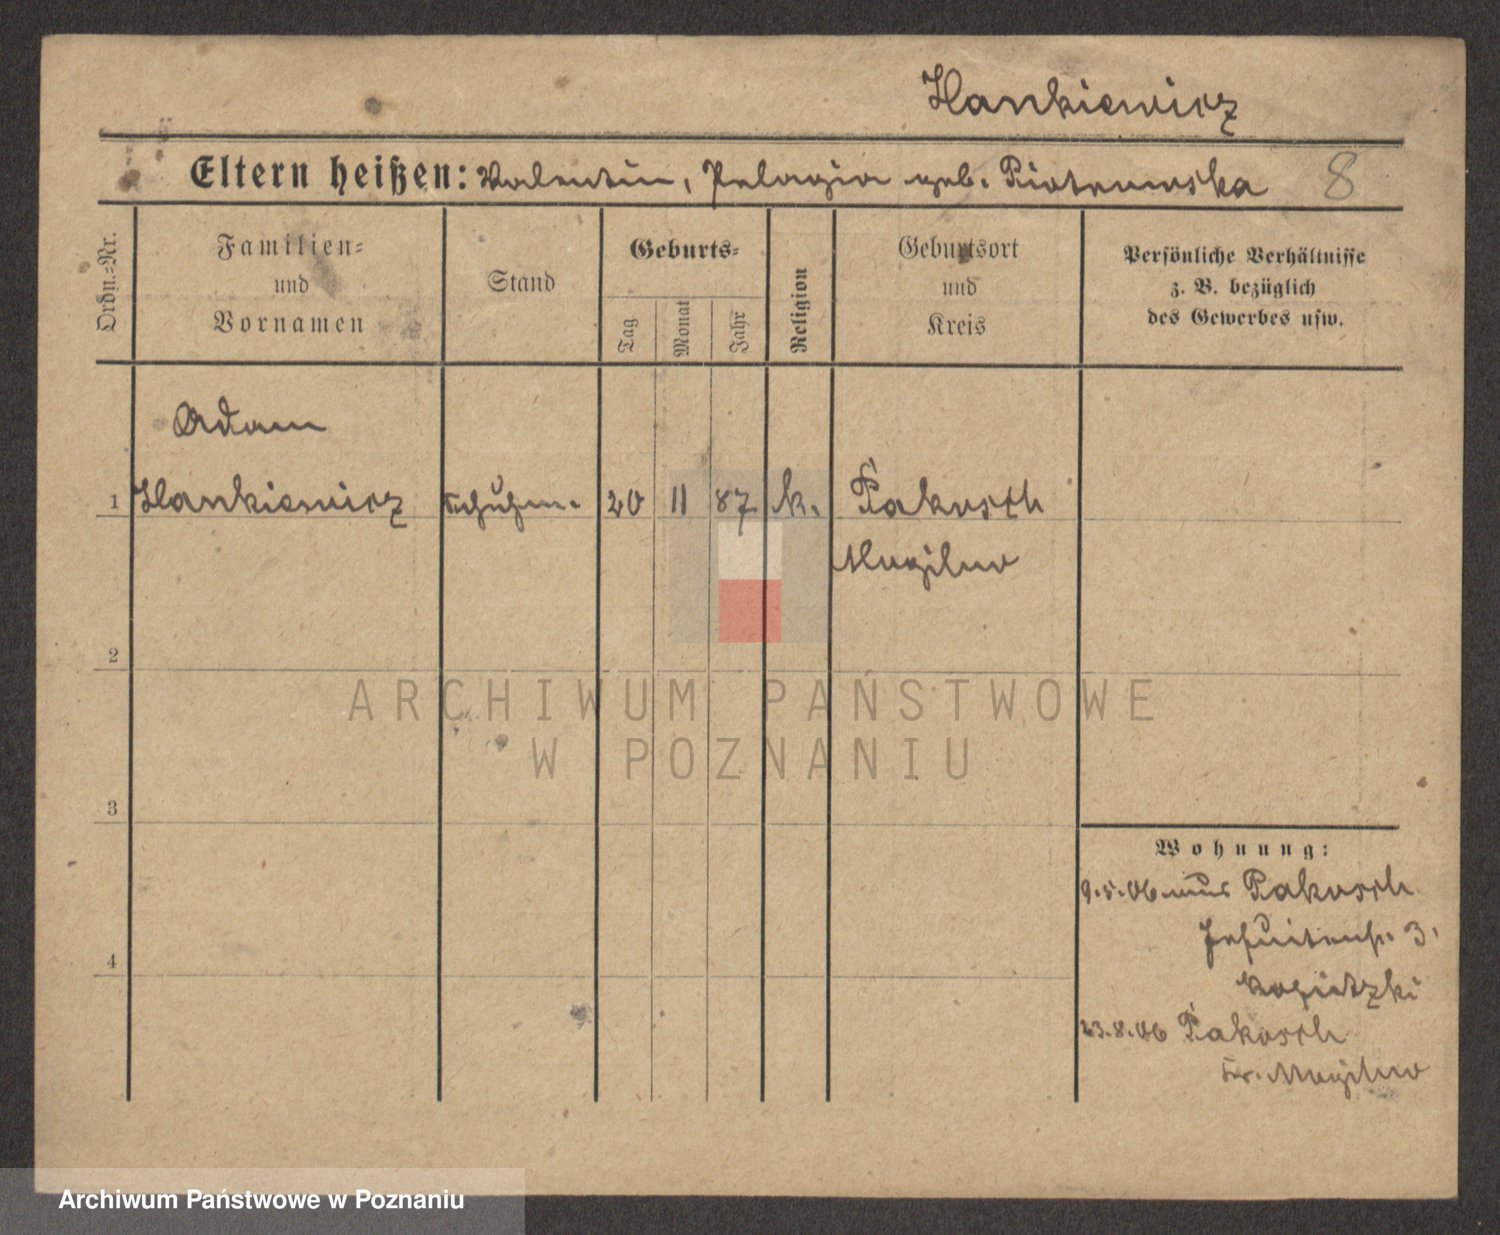 Hankiewicz
Eltern heißen: Valentin, Pelagia geb. Piotrowska 8
Ordn.-Nr.
Familien-
und
Vornamen
Stand
Geburts-
Tag
Monat
Jahr
Religion
Geburtsort
und
Kreis
Persönliche Verhältnisse
z. B. bezüglich
des Gewerbes usw.
Adam
1 Hankiewicz Schuhm. 20 11 87 k. Pakosch
Mogilno
2
ARCHIWUM PAŃSTWOWE
W POZNANIU
3
Wohnung:
9.5.06 aus Pakosch
Jesuitenstr. 3.
4
23.8.06 Pakosch
Kr. Mogilno
Archiwum Państwowe w Poznaniu